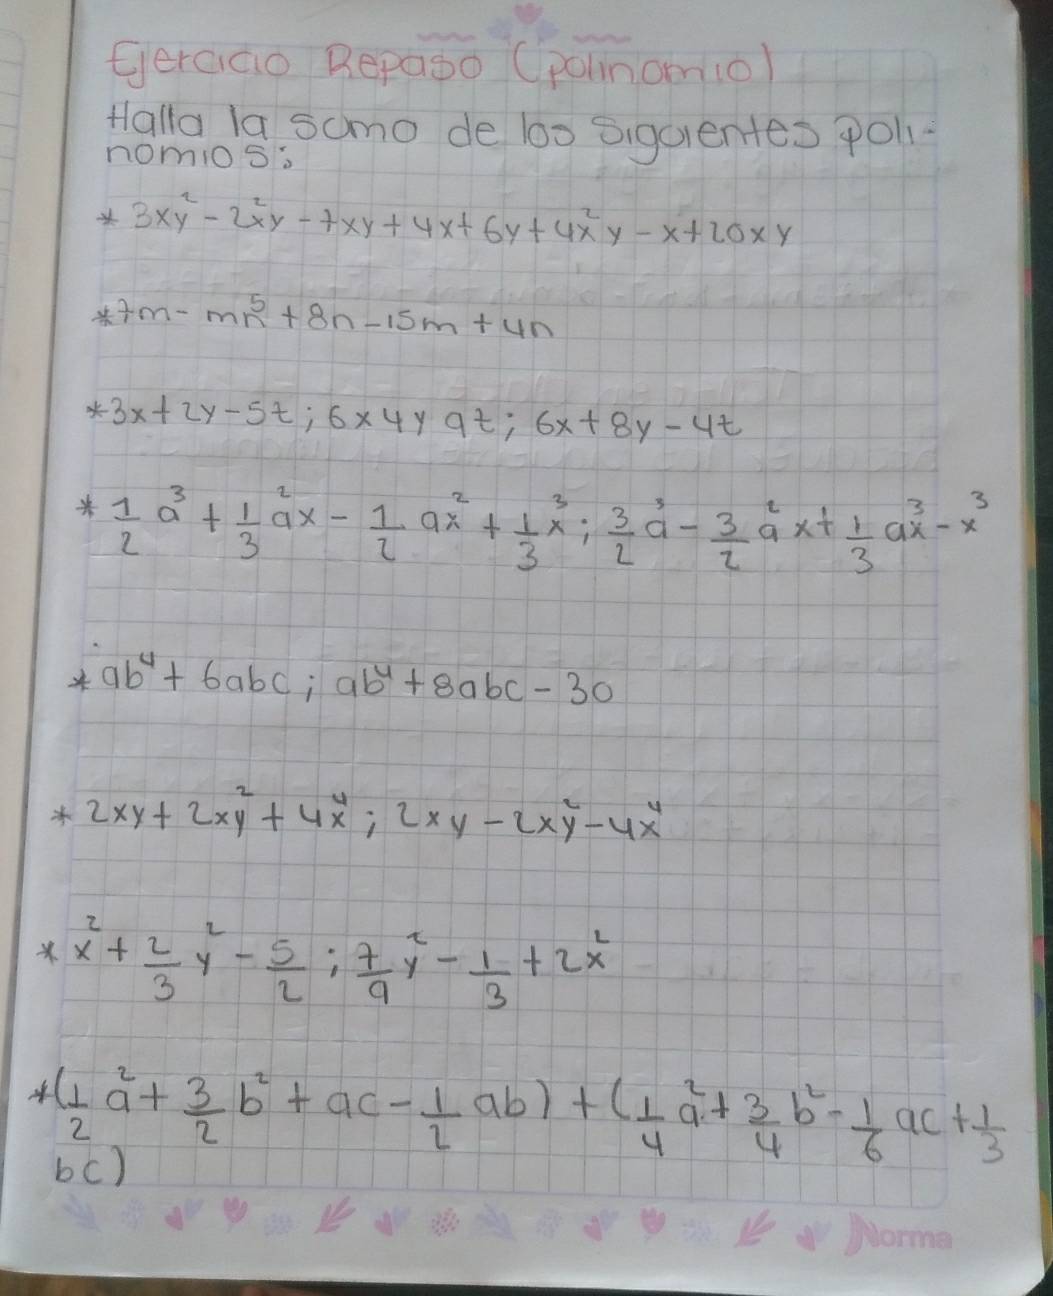 Ejercicio Repaso (polinomio)
Halla la suma de los siguientes poli-
nomios:
* 3xy² - 2x²y - 7xy + 4x + 6y + 4x²y - x + 20xy
* 7m - mn⁵ + 8n - 15m + 4n
* 3x + 2y - 5t ; 6x 4y 9t ; 6x + 8y - 4t
* 1/2 a³ + 1/3 a²x - 1/2 ax² + 1/3 x³ ; 3/2 a³ - 3/2 a²x + 1/3 ax³ - x³
* ab⁴ + 6abc ; ab⁴ + 8abc - 30
* 2xy + 2xy² + 4x⁴ ; 2xy - 2xy² - 4x⁴
* x² + 2/3 y² - 5/2 ; 7/9 y² - 1/3 + 2x²
* (1/2 a² + 3/2 b² + ac - 1/2 ab) + (1/4 a² + 3/4 b² - 1/6 ac + 1/3
bc)
Norma